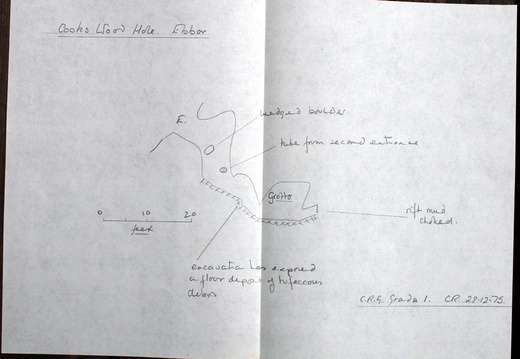 Cooks Wood Hole. Ebbor
E.
wedged boulder
tube from second entrance
Grotto
0 10 20
feet
rift mud
choked.
excavation has exposed
a floor deposit of tufaceous
debris
C.R.G. Grade 1. CR. 28-12-75.